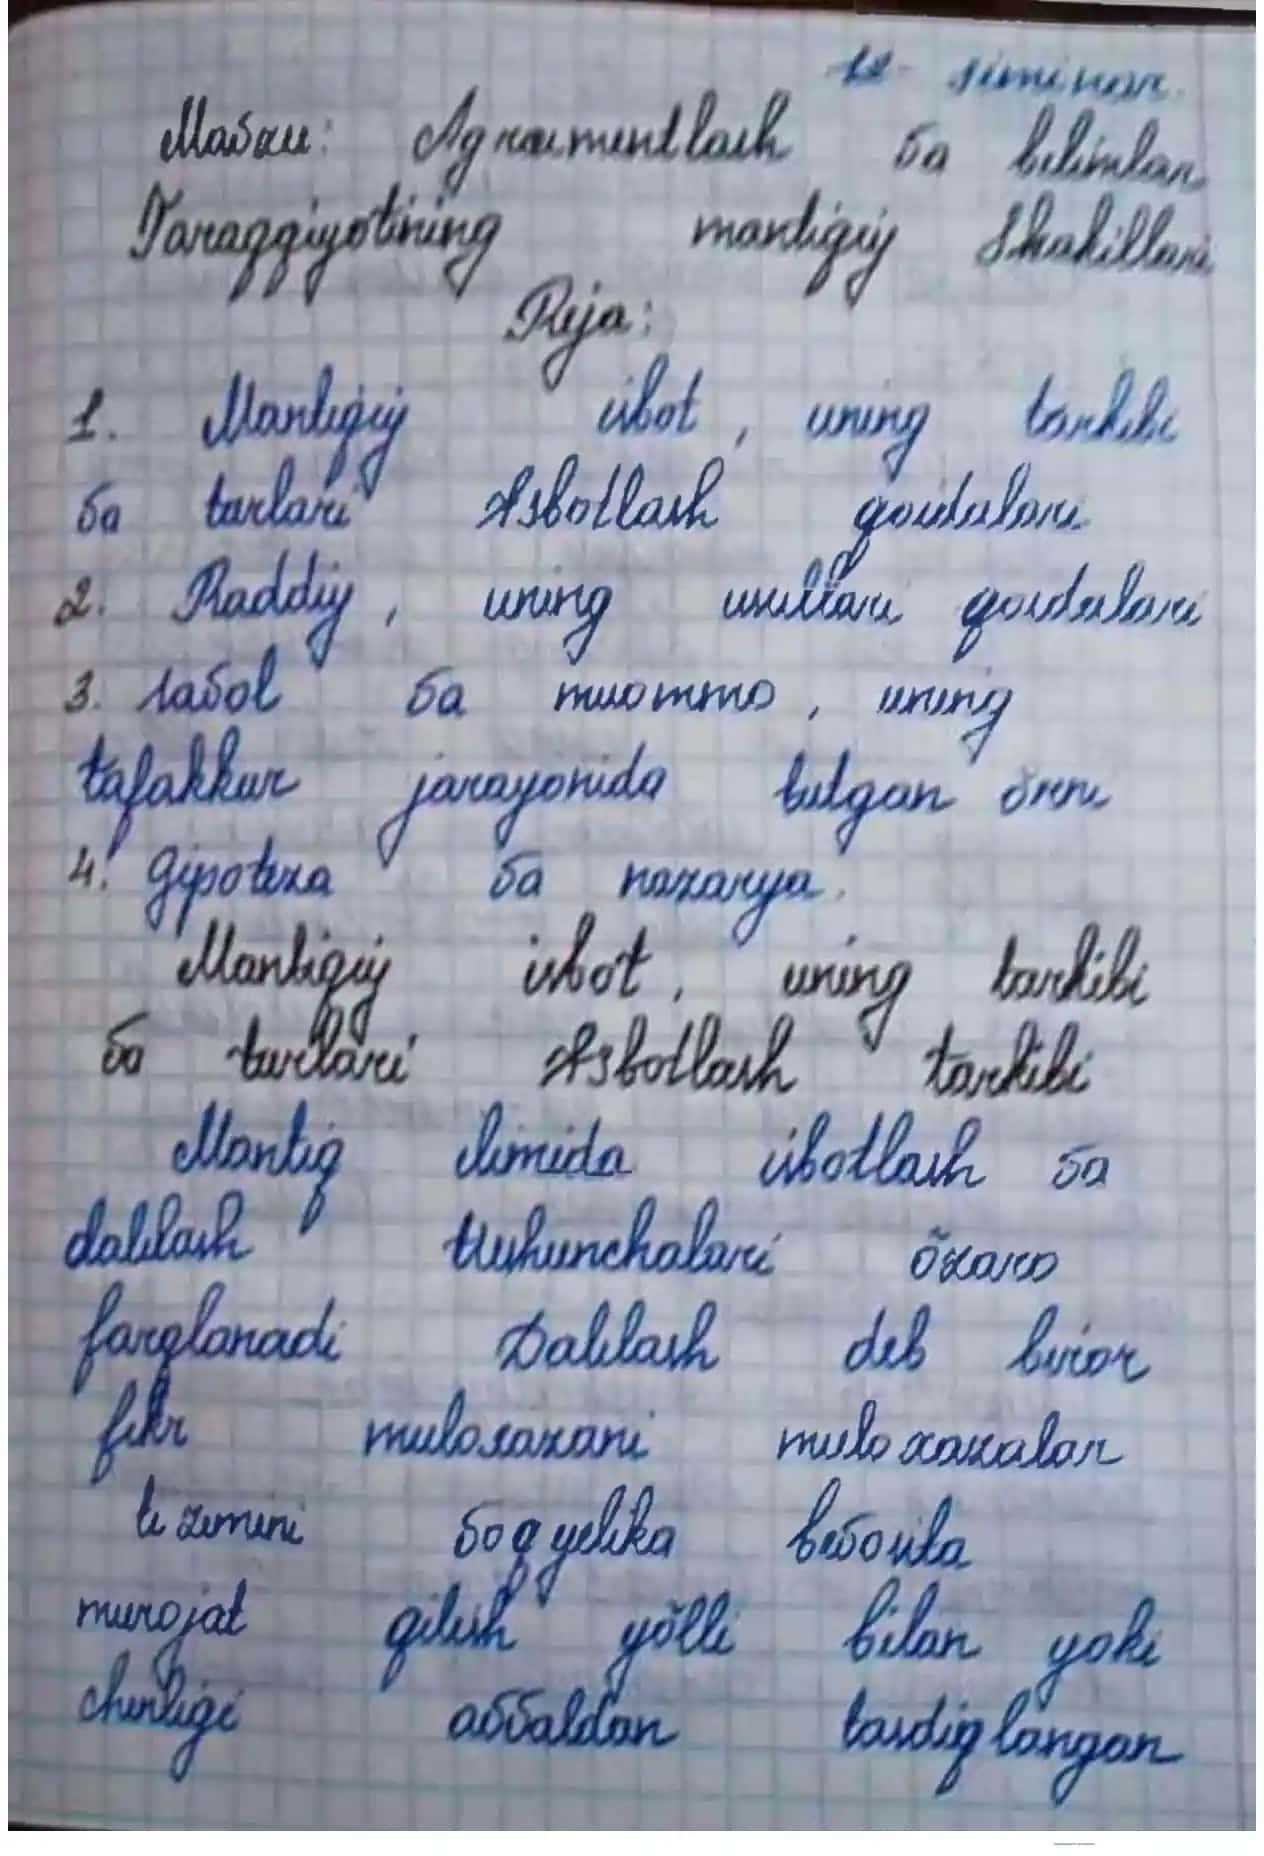 12- siminar.
Mavzu: Agraumentlash va bilimlar
Taraqqiyotining mantiqiy Shakillari
Reja:
1. Mantiqiy isbot, uning tarkibi
va turlari Isbotlash qoidalari
2. Raddiy, uning usullari qoidalari
3. savol va muommo, uning
tafakkur jarayonida tutgan õrni
4. gipoteza va nazarya.
Mantiqiy isbot, uning tarkibi
va turlari Isbotlash tarkibi
Mantiq ilimida isbotlash va
dalilash tushunchalari õzaro
farqlanadi Dalilash deb biror
fikr muloxazani muloxazalar
ti zimini voqyelika bevosita
murojat qilish yõlli bilan yoki
chinligi avvaldan tasdiqlangan